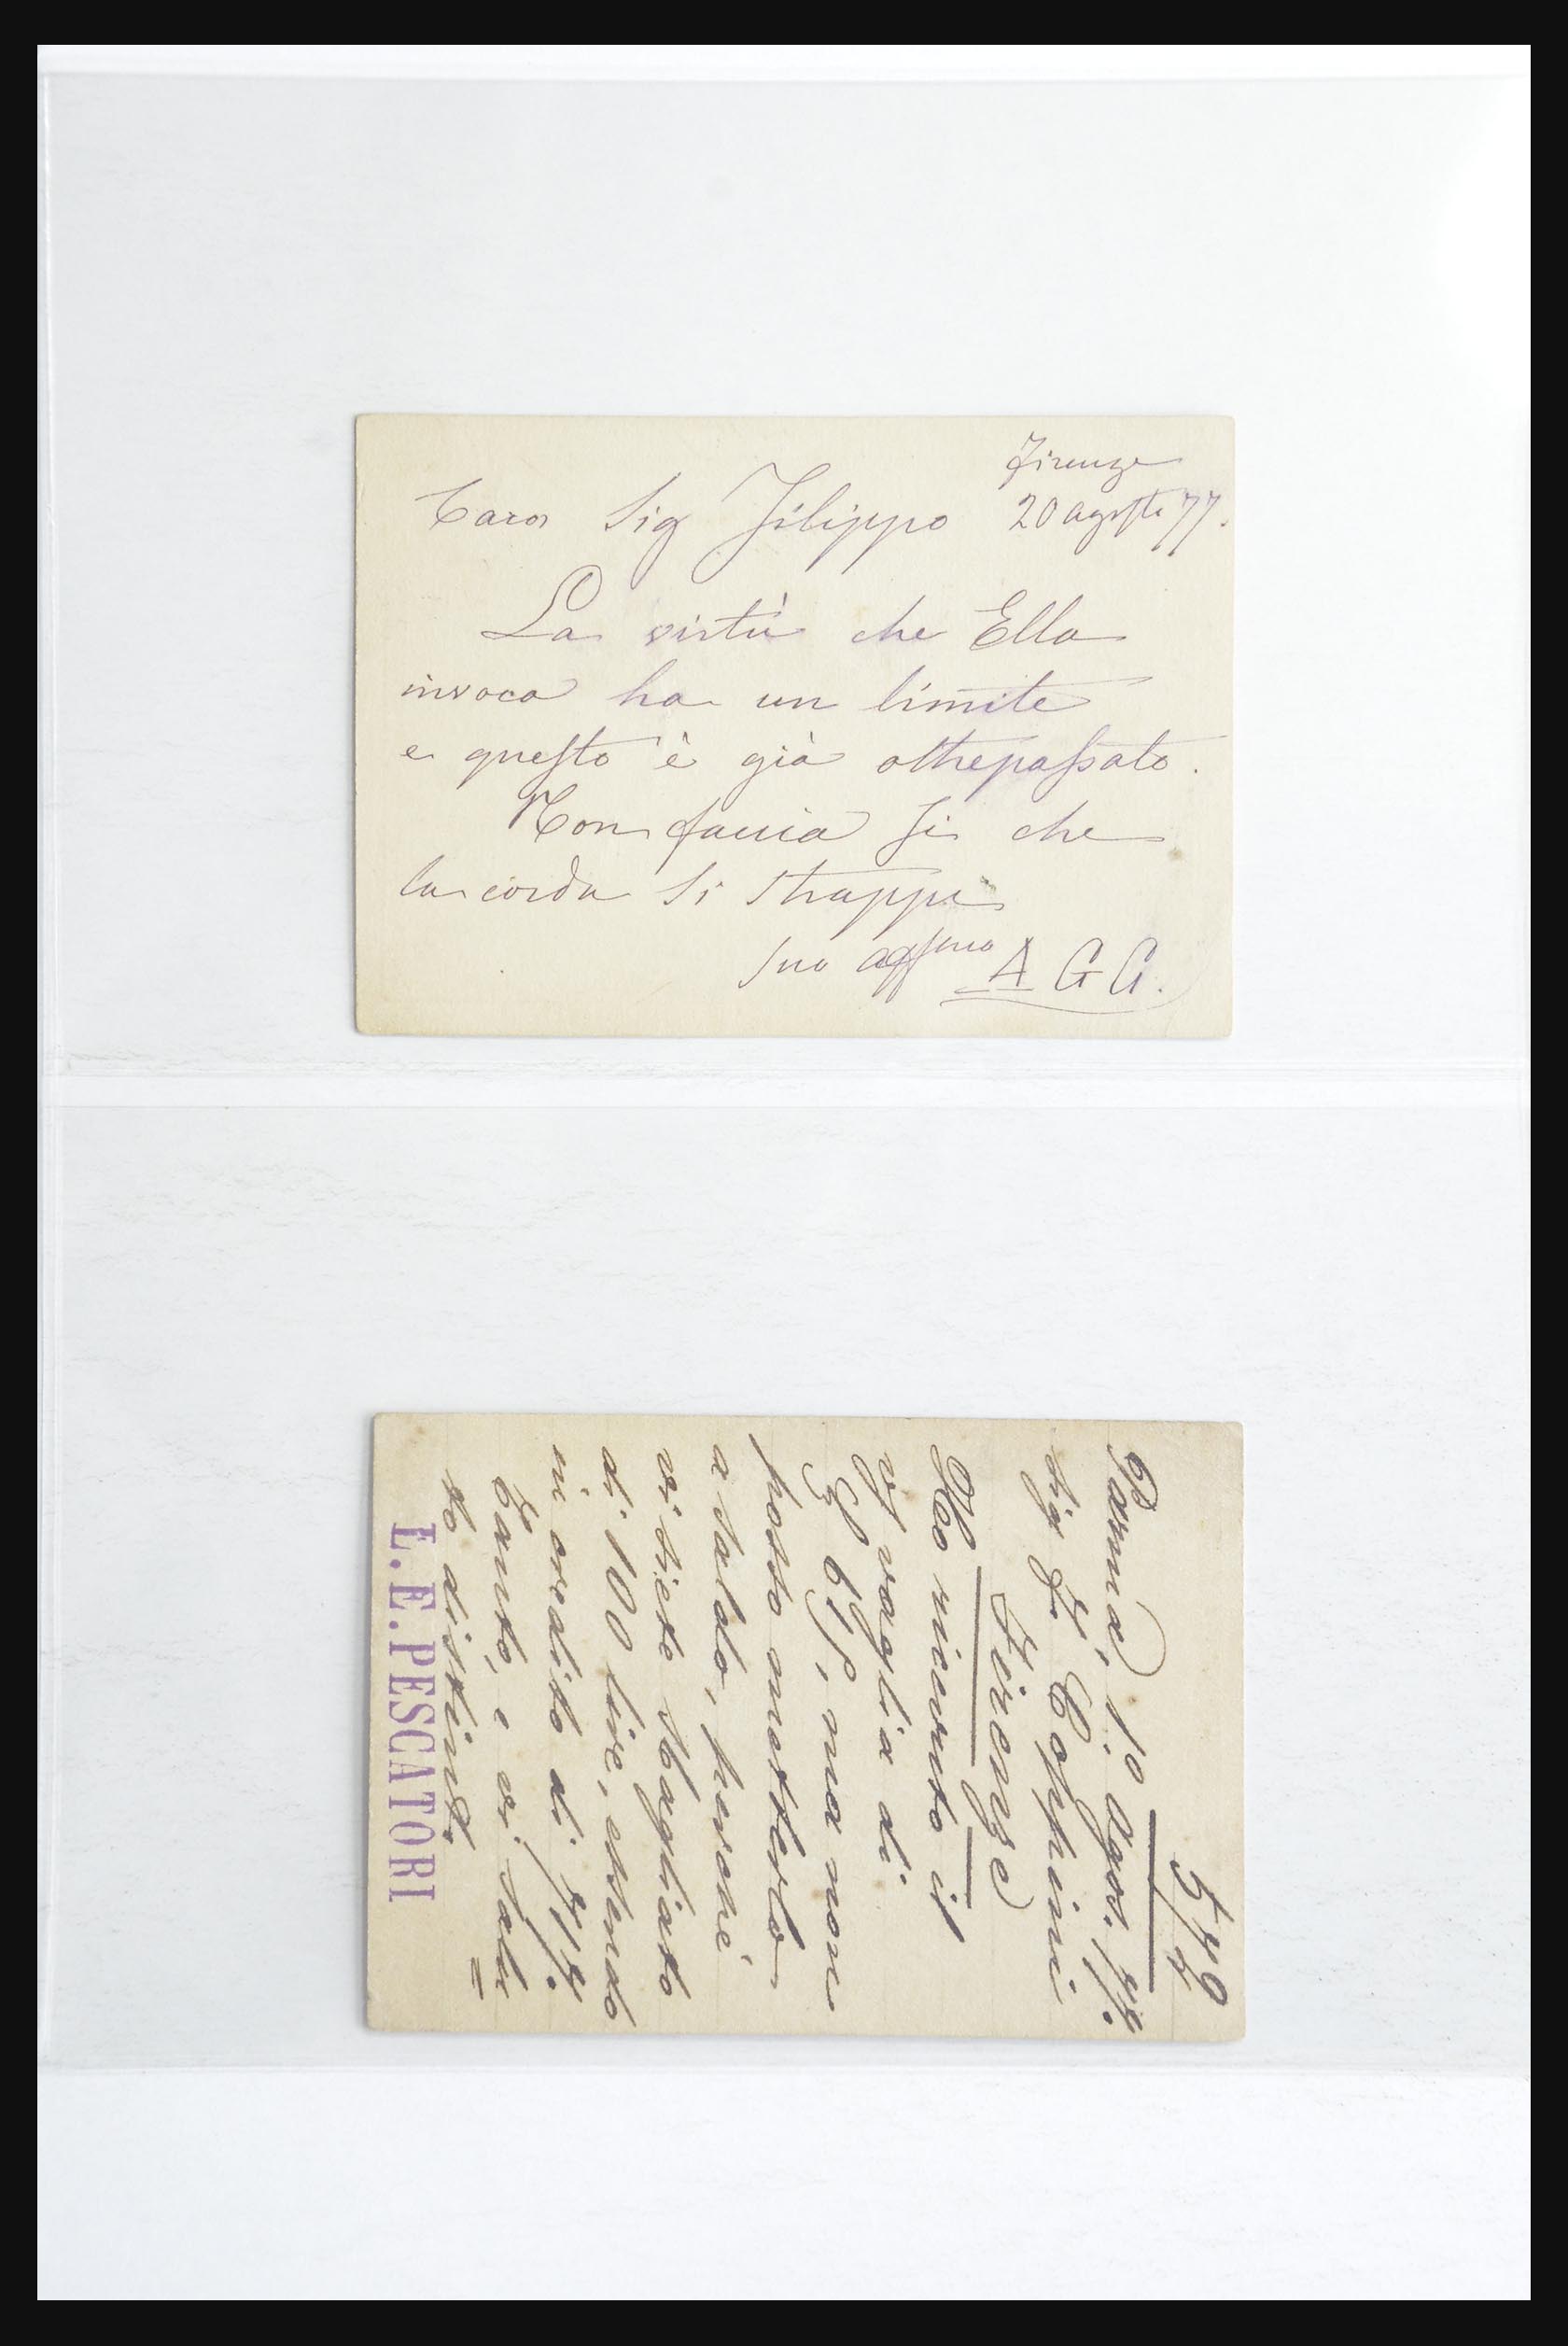 Firenze
Caro Sig Filippo 20 agosto 77.
La virtù che Ella
invoca ha un limite
e questo è già oltrepassato.
Non faccia sì che
la corda si strappi
Suo affmo A G G.
572
Parma, 1.º agos. 77.
Sig F. Coppini
Firenze
Ho ricevuto il
vaglia di
£ 615, ma non
posso metterlo
a saldo, perché
vi siete sbagliato
di 100 lire, essendo
in credito di 715.
Tanto, e vi salu
to distint.
L. E. PESCATORI